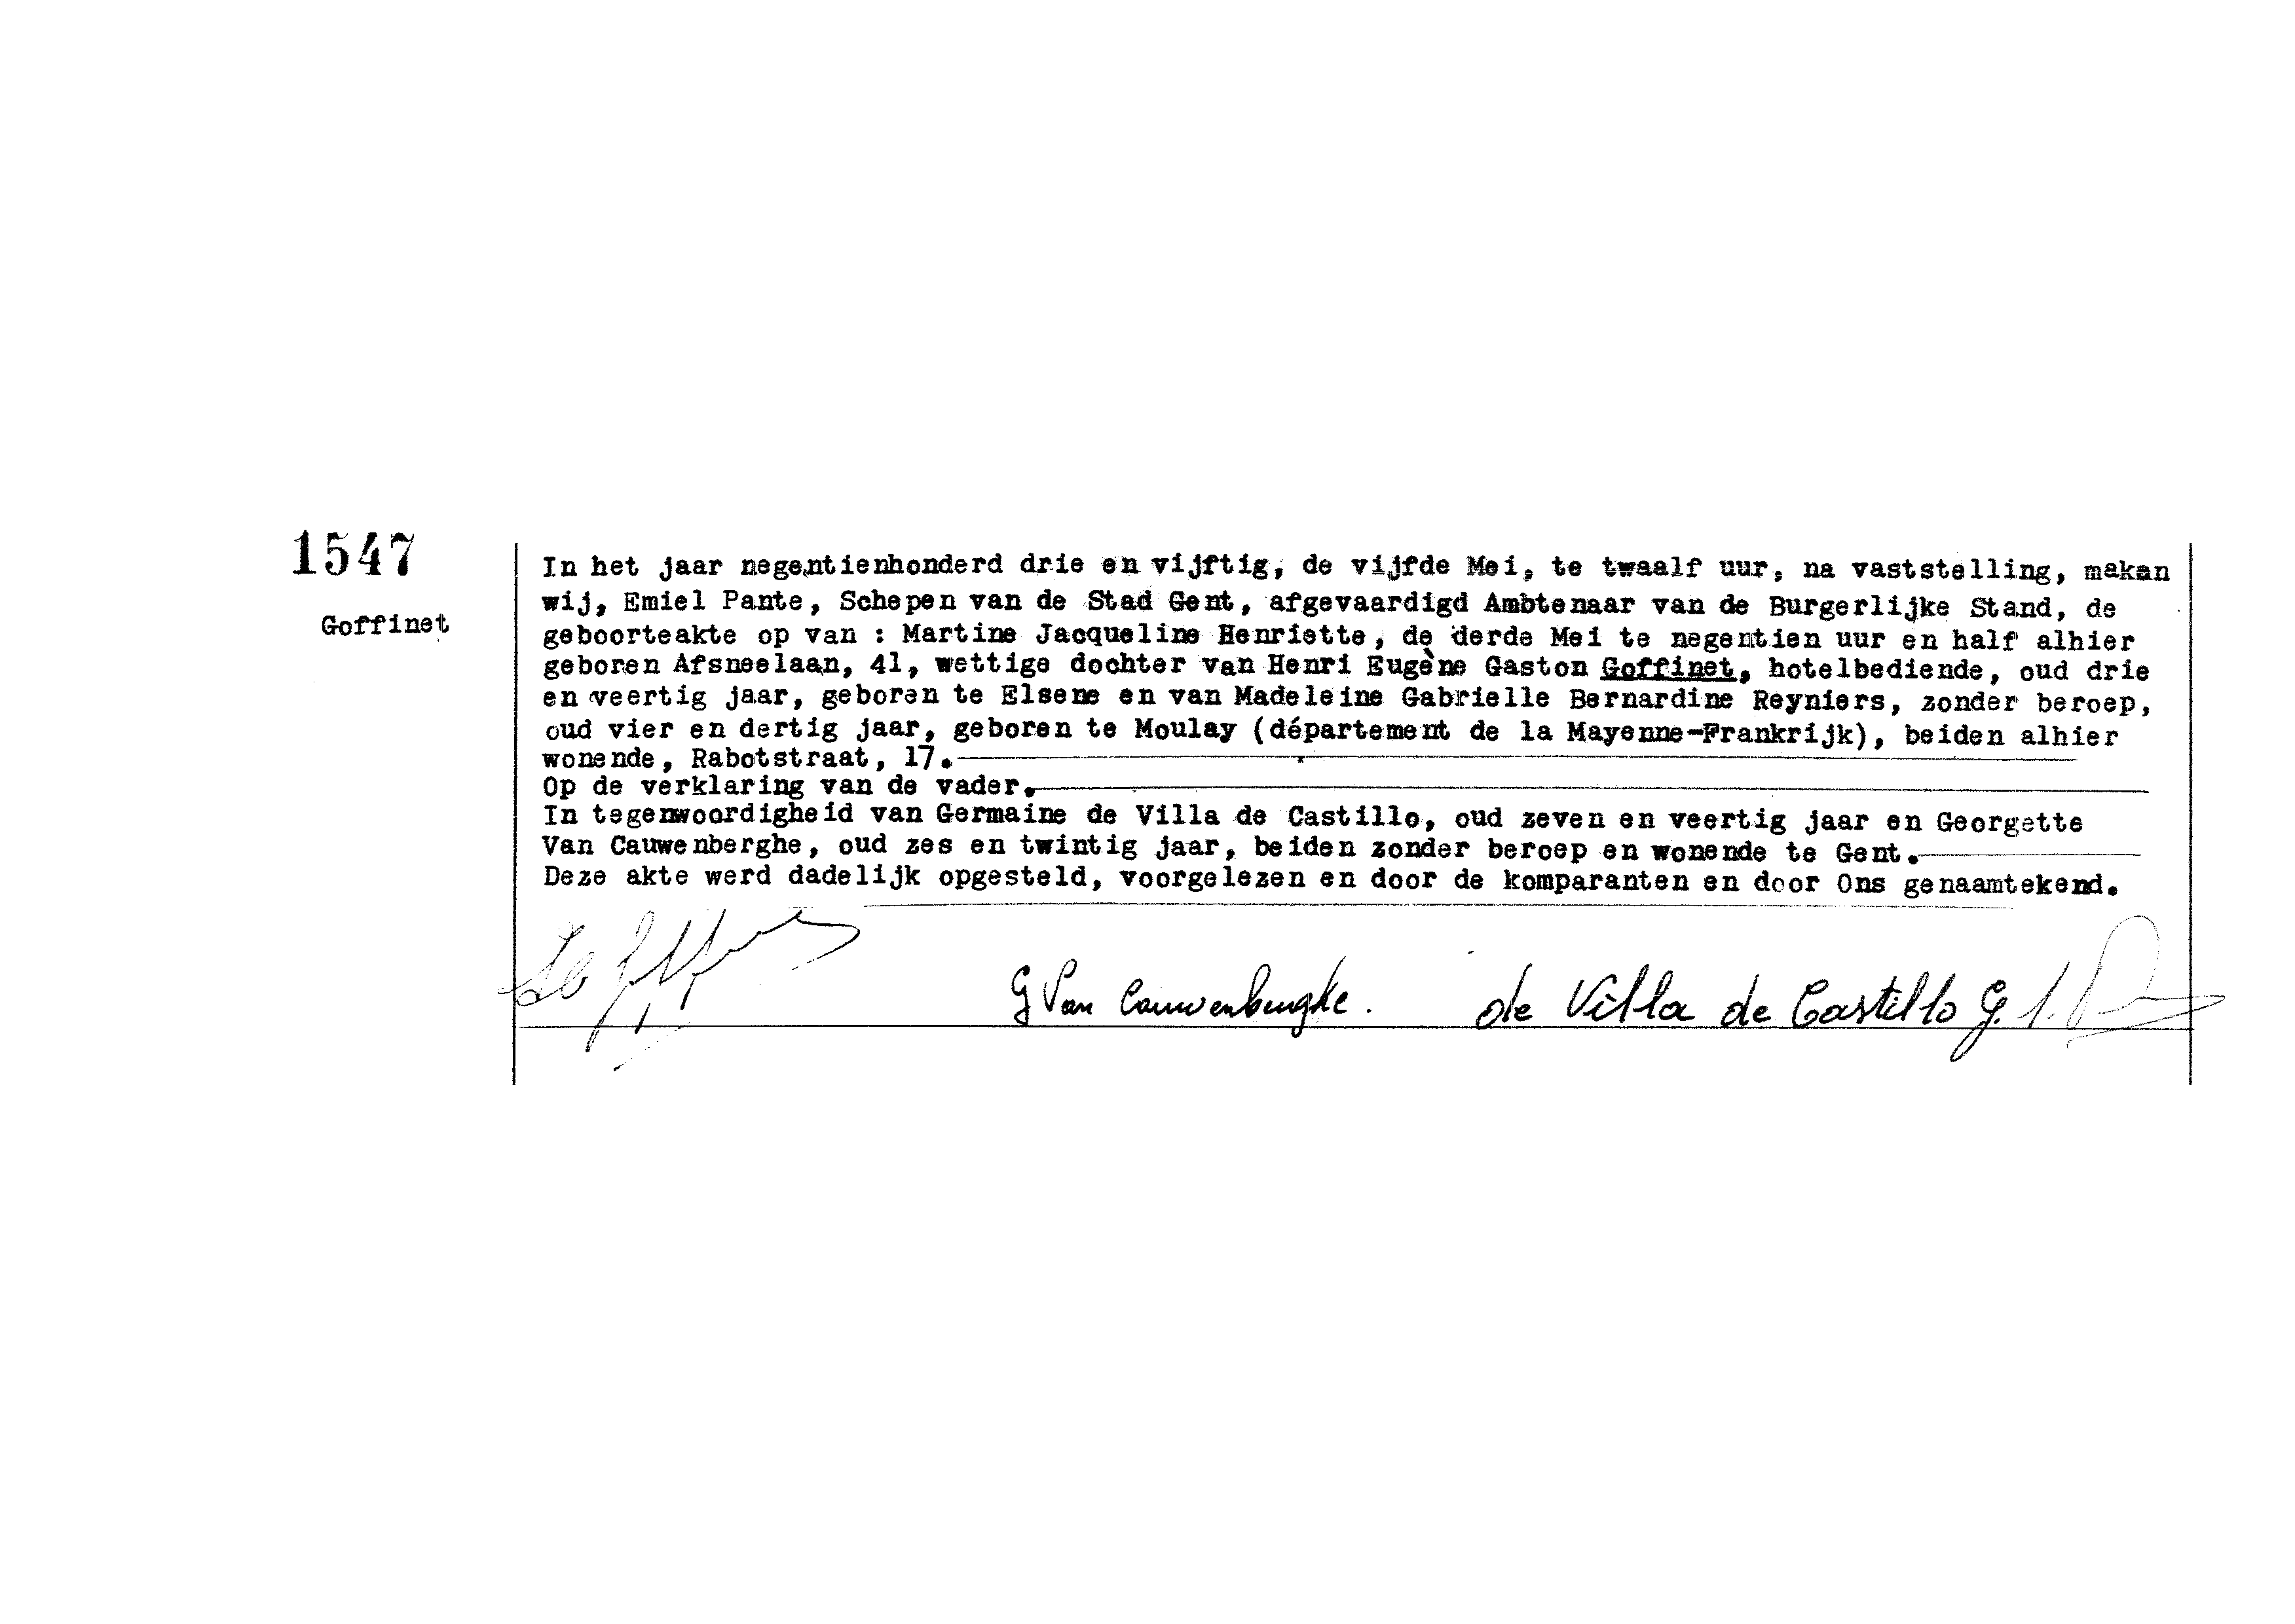 1547
Goffinet
In het jaar negentienhonderd drie en vijftig, de vijfde Mei, te twaalf uur, na vaststelling, maken
wij, Emiel Pante, Schepen van de Stad Gent, afgevaardigd Ambtenaar van de Burgerlijke Stand, de
geboorteakte op van : Martine Jacqueline Henriette, de derde Mei te negentien uur en half alhier
geboren Afsneelaan, 41, wettige dochter van Henri Eugène Gaston Goffinet, hotelbediende, oud drie
en veertig jaar, geboren te Elsene en van Madeleine Gabrielle Bernardine Reyniers, zonder beroep,
oud vier en dertig jaar, geboren te Moulay (département de la Mayenne-Frankrijk), beiden alhier
wonende, Rabotstraat, 17.
Op de verklaring van de vader.
In tegenwoordigheid van Germaine de Villa de Castillo, oud zeven en veertig jaar en Georgette
Van Cauwenberghe, oud zes en twintig jaar, beiden zonder beroep en wonende te Gent.
Deze akte werd dadelijk opgesteld, voorgelezen en door de komparanten en door Ons genaamtekend.
G Van Cauwenberghe. de Villa de Castillo G.